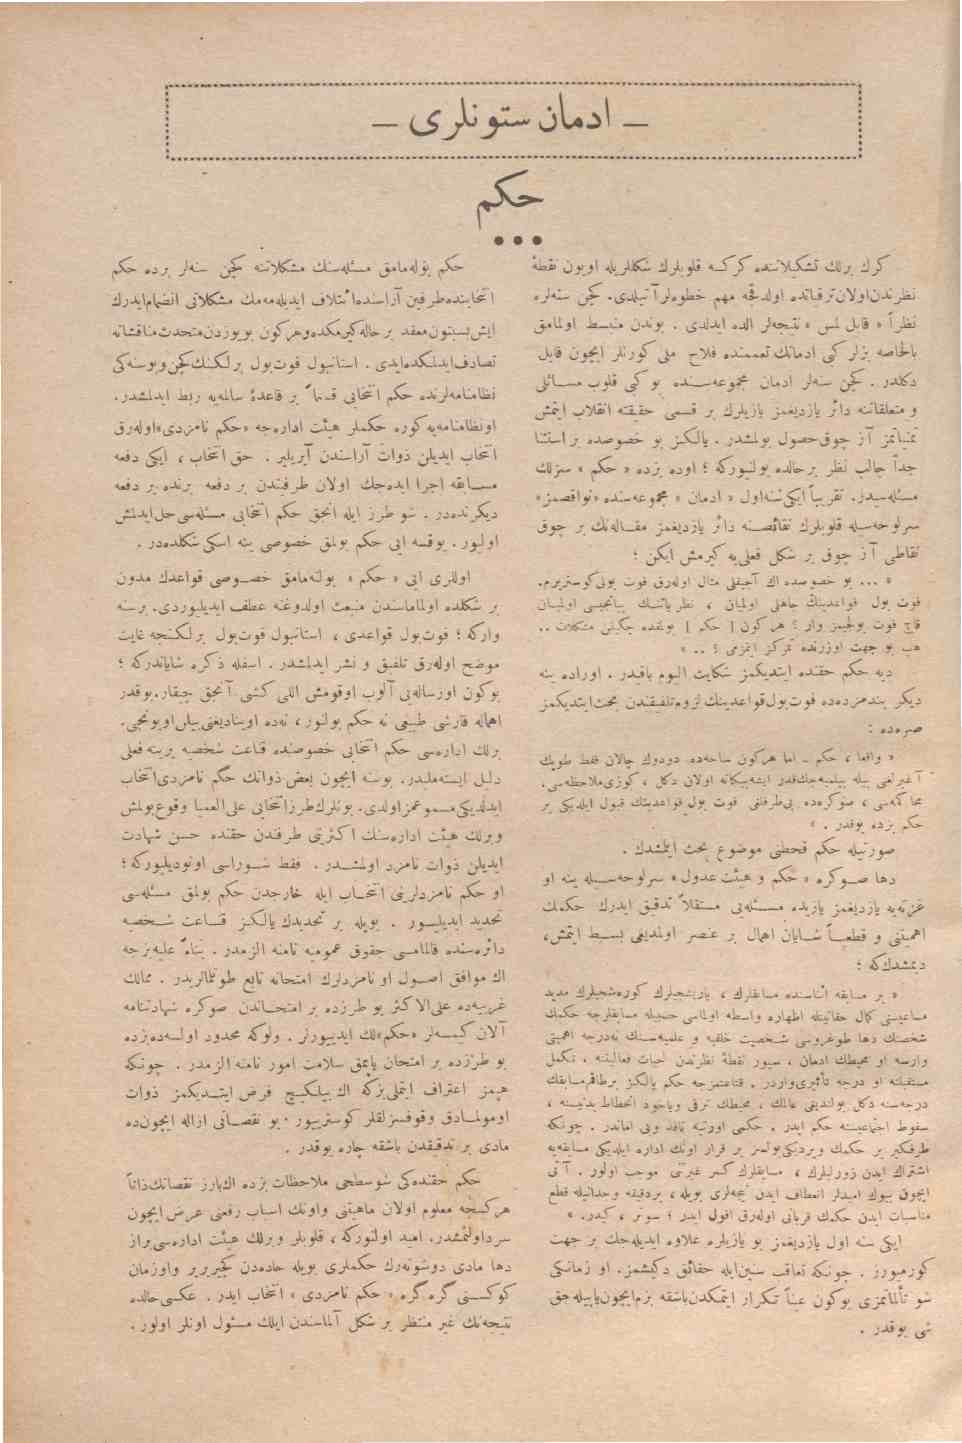 — ادمان ستونلری —
حكم
كرك برلك تشكيلاتنده كركسه قلوبلرك شكللريله اويون نقطۀ
نظرندن اولان ترقياتده اولدقجه مهم خطوه‌لر آتيلدی. كچن سنه‌لره
نظراً « قابل لمس » نتيجه‌لر الده ايدلدی . بوندن منبسط اولمامق
بالخاصه بزلر كبی ادمانك تعممنده فلاح ملی كورنلر ايچون قابل
دكلدر . كچن سنه‌لر ادمان مجموعه‌سنده بو كبی قلوب مسائلی
و متعلقاتنه دائر يازديغمز يازيلرك بر قسمی حقيقته انقلاب ايتمش
تمنياتمز آز چوق حصول بولمشدر . يالكز بو خصوصده بر استثنا
جداً جالب نظر بر حالده بولنيوركه ؛ اوده بزده « حكم » سزلك
مسئله‌سيدر. تقريباً ايكی سنه اول « ادمان » مجموعه‌سنده «نواقصمز»
سرلوحه‌سيله قلوبلرك نقائصنه دائر يازديغمز مقاله‌نك بر چوق
نقاطی آز چوق بر شكل فعلی‌يه كيرمش ايكن ؛
« ... بو خصوصده اك آجيقلی مثال اوله‌رق فوت بولی كوستريرم.
فوت بول قواعدينك جاهلی اولميان ، نظرياتنك يبانجيسی اولميان
قاچ فوت بولجيمز وار ؟ هر كون [ حكم ] بولمقده چكيلن مشكلات ..
هب بو جهت اوزرنده تمركز ايتمزمی ؟ .. »
ديه حكم حقنده ايتديكمز شكايت اليوم باقيدر . اوراده ينه
ديكر بندمزده‌ده فوت بول قواعدينك لزوم تلفيقندن بحث ايتديكمز
صره‌ده :
« واقعا ، حكم ـ اما هركون ساحه‌ده دودوك چالان فقط طوپك
آغيرلغنی بيله بيلميه‌جك قدر ايشه بيكانه اولان دكل ، كوزی ملاحظه‌سی.
محاكمه‌سی ، صوكره‌ده بی‌طرفلغی فوت بول قواعدينك قبول ايلديكی بر
حكم بزده يوقدر . »
صورتيله حكم قحطنی موضوع بحث ايتمشدك .
دها صوكره « حكم و هيئت عدول » سرلوحه‌سيله ينه او
غزته‌يه يازديغمز يازيده مسئله‌يی مستقلاً تدقيق ايدرك حكمك
اهميتنی و قطعياً شايان اهمال بر عنصر اولمديغی بسط ايتمش،
ديمشدك كه ؛
« بر مسابقه اثناسنده مسابقلرك ، ياريشجيلرك كوره‌شجيلرك مديد
مساعيسنی كمال حقانيتله اظهاره واسطه اولماسی حسبيله مسابقلرجه حكمك
شخصنك دها طوغروسی شخصيت خلقيه و علميه‌سنك نه‌درجه اهميتی
وارسه او محيطك ادمان ، سپور نقطۀ نظرندن حيات فعاليتنه ، تكمل
مستقبلنه او درجه تأثيری واردر . قناعتمزجه حكم يالكز بر طاقم مسابقك
درجه‌سنه دكل بولنديغی عالمك ، محيطك ترقی وياخود انحطاط بدنيسنه ،
سقوط اجتماعيسنه حكم ايدر . حكمی اورتيه نافذ وبی امانــدر . چونكه
طرفگير بر حكمك ويرديكی بولمز بر قرار اونك اداره ايلديكی مسابقه‌يه
اشتراك ايدن زورليلرك ، مسابقلرك كسر غيرتنی موجب اولور . آتی
ايچون بيوك اميدلر انعطاف ايدن نتيجه‌لری بويله ، بر دقيقه وجدانيله قطع
مناسبات ايدن حكمك قربانی اوله‌رق افول ايدر ؛ سونر ، كيدر. »
ايكی سنه اول يازديغمز بو يازيلره علاوه ايديله‌جك بر جهت
كورميورز . چونكه تعاقب سنين ايله حقائق دكيشمز. او زمانكی
شو تألماتمزی بوكون عيناً تكرار ايتمكدن باشقه بزم ايچون ياپيله‌جق
شی يوقدر .
حكم بوله‌مامق مسئله‌سنك مشكلاتنه كچن سنه‌لر برده حكم
انتخابنده طرفين آراسنده ائتلاف ايديله‌مه‌مك مشكلاتی انضمام ايدرك
ايش بسبتون معقد بر حاله كيرمكده و هركون بو يوزدن متحدث مناقشاته
تصادف ايدلمكده ايدی . استانبول فوت بول برلكنك كچن و بو سنه كی
نظامنامه‌لرنده حكم انتخابی قسماً بر قاعدۀ سالمه‌يه ربط ايدلمشدر.
او نظامنامه‌يه كوره حكملر هيئت اداره‌جه «حكم نامزدی» اوله‌رق
انتخاب ايديلن ذوات آراسندن آيريلير . حق انتخاب ، ايكی دفعه
مسابقه اجرا ايده‌جك اولان طرفيندن بر دفعه برنده بر دفعه
ديكرنده‌در . شو طرز ايله انجق حكم انتخابی مسئله‌سی حل ايدلمش
اوليور . يوقسه ايی حكم بولمق خصوصی ينه اسكی شكلده‌در .
اوللری ايی « حكم » بولنه‌مامق خصوصی قواعدك مدون
بر شكلده اولماماسندن منبعث اولدوغنه عطف ايديليوردی. بر سنه
واركه ؛ فوت بول قواعدی ، استانبول فوت بول برلكنجه غايت
موضح اوله‌رق تلفيق و نشر ايدلمشدر. اسفله ذكره شاياندركه ؛
بوكون اورساله‌يی آلوب اوقومش اللی كشی آنجق چيقار. بوقدر
اهماله قارشی طبيعی نه حكم بولنور ، نه‌ده اوينايديغنی بيلن اويونجی.
برلك اداره‌سی حكم انتخابی خصوصنده قناعت شخصيه يرينه فعلی
دليل ايسته‌ملیدر. بو سنه ايچون بعض ذواتك حكم نامزدی انتخاب
ايدلديكی مسموعمز اولدی. بونلرك طرز انتخابی علی العميا وقوع بولمش
و برلك هيئت اداره‌سنك اكثريتی طرفندن حقنده حسن شهادت
ايديلن ذوات نامزد اولمشدر . فقط شوراسی اونوديليوركه ؛
او حكم نامزدلرينی انتخاب ايله خارجدن حكم بولمق مسئله‌سی
تحديد ايديليور . بويله بر تحديدك يالكز قناعت شخصيه
دائره‌سنده قالمامسی حقوق عموميه نامنه الزمدر . بناءً عليه بزجه
اك موافق اصول او نامزدلرك امتحانه تابع طوتملريدر . ممالك
غربيه‌ده علی الاكثر بو طرزده بر امتحاندن صوكره شهادتنامه
آلان كيمسه‌لر «حكم»لك ايديورلر . ولوكه محدود اولسه‌ده بزده
بو طرزده بر امتحان ياپمق سلامت امور نامنه الزمدر . چونكه
هپمز اعتراف ايتملی‌يزكه اك بيلكيج فرض ايتديكمز ذوات
اومولمادق وقوفسزلقلر كوستريیور . بو نقصانی ازاله ايچون‌ده
مادی بر تدقيقدن باشقه چاره يوقدر .
حكم حقنده كی شو سطحی ملاحظات بزده اك بارز نقصانك ذاتاً
هركسجه معلوم اولان ماهيتنی و اونك اسباب رفعنی عرض ايچون
سرد اولنمشدر. اميد اولنوركه ، قلوبلر و برلك هيئت اداره‌سی براز
دها مادی دوشونه‌رك حكملری بويله جاده‌دن كچيرير و اوزمان
كوكسنی گره گره « حكم نامزدی » انتخاب ايدر . عكسی حالده
نتيجه‌نك غير منتظر بر شكل آلماسندن ايلك مسئول اونلر اولور .